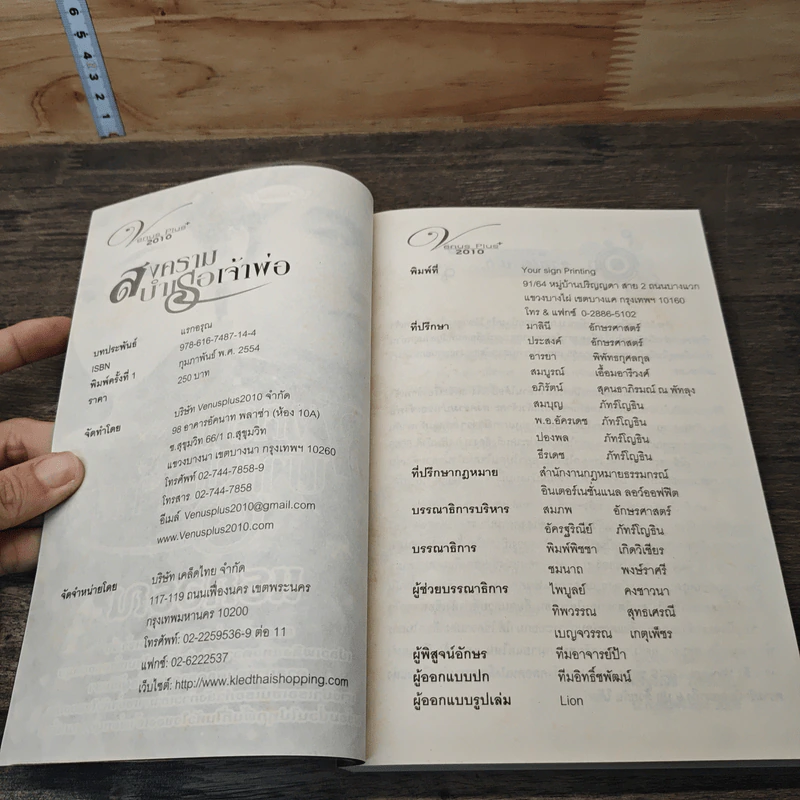 6
5
4
3
2
1
Venus Plus+
2010
สงคราม
บำเรอเจ้าพ่อ
บทประพันธ์ แรกอรุณ
ISBN 978-616-7487-14-4
พิมพ์ครั้งที่ 1 กุมภาพันธ์ พ.ศ. 2554
ราคา 250 บาท
จัดทำโดย บริษัท Venusplus2010 จำกัด
98 อาคารอัคนาท พลาซ่า (ห้อง 10A)
ซ.สุขุมวิท 66/1 ถ.สุขุมวิท
แขวงบางนา เขตบางนา กรุงเทพฯ 10260
โทรศัพท์ 02-744-7858-9
โทรสาร 02-744-7858
อีเมล์ Venusplus2010@gmail.com
www.Venusplus2010.com
จัดจำหน่ายโดย บริษัท เคล็ดไทย จำกัด
117-119 ถนนเฟื่องนคร เขตพระนคร
กรุงเทพมหานคร 10200
โทรศัพท์: 02-2259536-9 ต่อ 11
แฟกซ์: 02-6222537
เว็บไซต์: http://www.kledthaishopping.com
Venus Plus+
2010
พิมพ์ที่ Your sign Printing
91/64 หมู่บ้านปริญญดา สาย 2 ถนนบางแวก
แขวงบางไผ่ เขตบางแค กรุงเทพฯ 10160
โทร & แฟกซ์ 0-2886-5102
ที่ปรึกษา มาลินี อักษรศาสตร์
ประสงค์ อักษรศาสตร์
อารยา พิพัทธกุศลกุล
สมบูรณ์ เอื้อมอารีวงศ์
อภิรัตน์ สุคนธาภิรมณ์ ณ พัทลุง
สมบุญ ภัทร์โญธิน
พ.อ.อัครเดช ภัทร์โญธิน
ปองพล ภัทร์โญธิน
ธีรเดช ภัทร์โญธิน
ที่ปรึกษากฎหมาย สำนักงานกฎหมายธรรมกรณ์
อินเตอร์เนชั่นแนล ลอว์ออฟฟิต
บรรณาธิการบริหาร สมภพ อักษรศาสตร์
อัครฐริณีย์ ภัทร์โญธิน
บรรณาธิการ พิมพ์พิชชา เกิดวิเชียร
ชมนาถ พงษ์ราศรี
ผู้ช่วยบรรณาธิการ ไพบูลย์ คงชาวนา
ทิพวรรณ สุทธเศรณี
เบญจวรรณ เกตุเพ็ชร
ผู้พิสูจน์อักษร ทีมอาจารย์ป้า
ผู้ออกแบบปก ทีมอิทธิ์ชพัฒน์
ผู้ออกแบบรูปเล่ม Lion